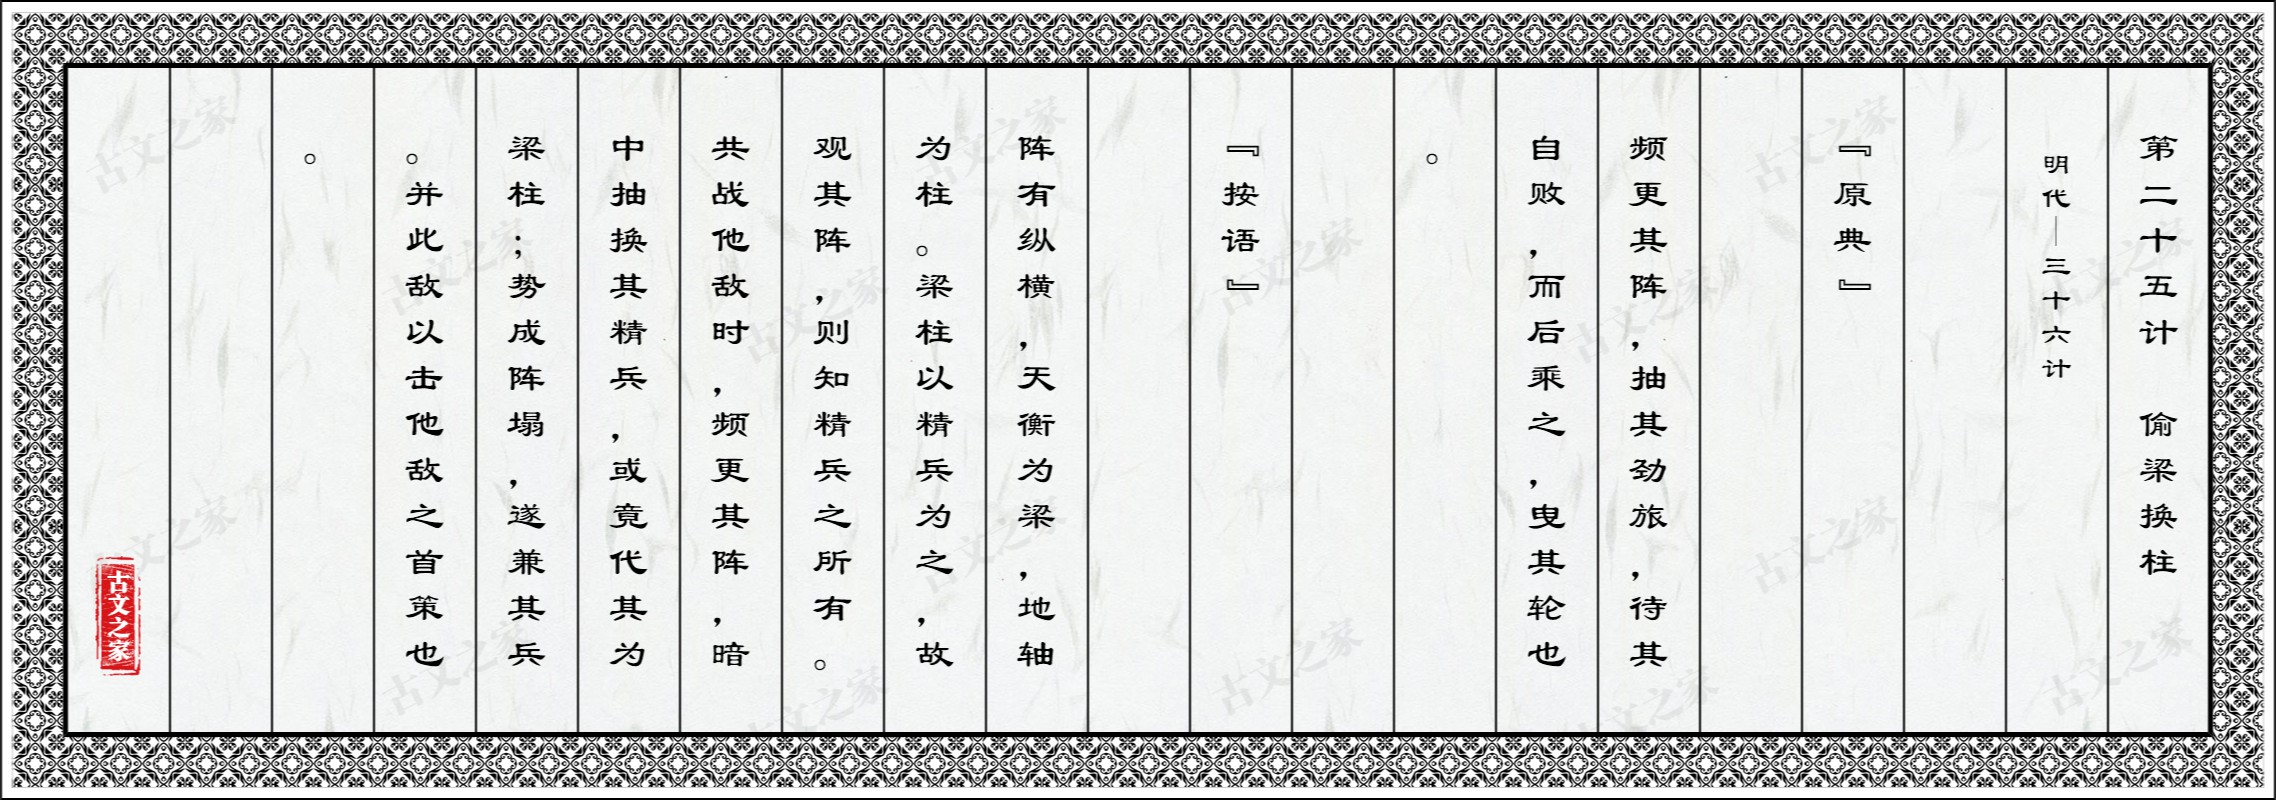 第二十五计　偷梁换柱
明代—三十六计
『原典』
频更其阵，抽其劲旅，待其
自败，而后乘之，曳其轮也
。
『按语』
阵有纵横，天衡为梁，地轴
为柱。梁柱以精兵为之，故
观其阵，则知精兵之所有。
共战他敌时，频更其阵，暗
中抽换其精兵，或竟代其为
梁柱；势成阵塌，遂兼其兵
。并此敌以击他敌之首策也
。
古文之家